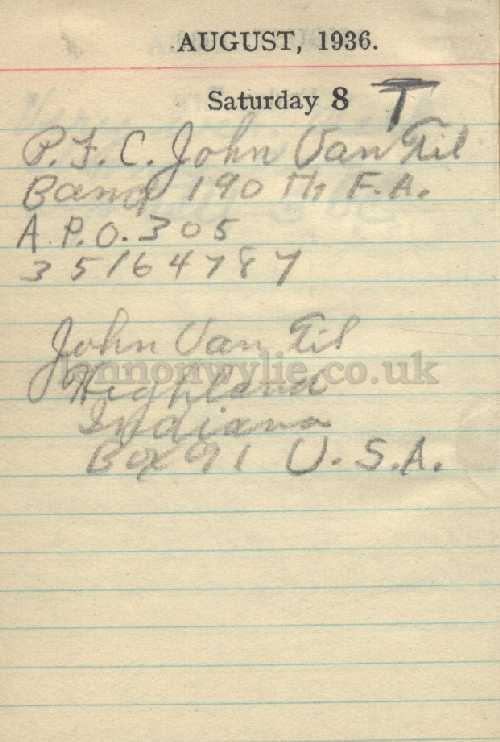 AUGUST, 1936.
Saturday 8 T
P.F.C. John Van Til
Band 190 Th F.A.
A.P.O. 305
35164787
John Van Til
lennonwylie.co.uk
Highland
Indiana
Box 91 U.S.A.